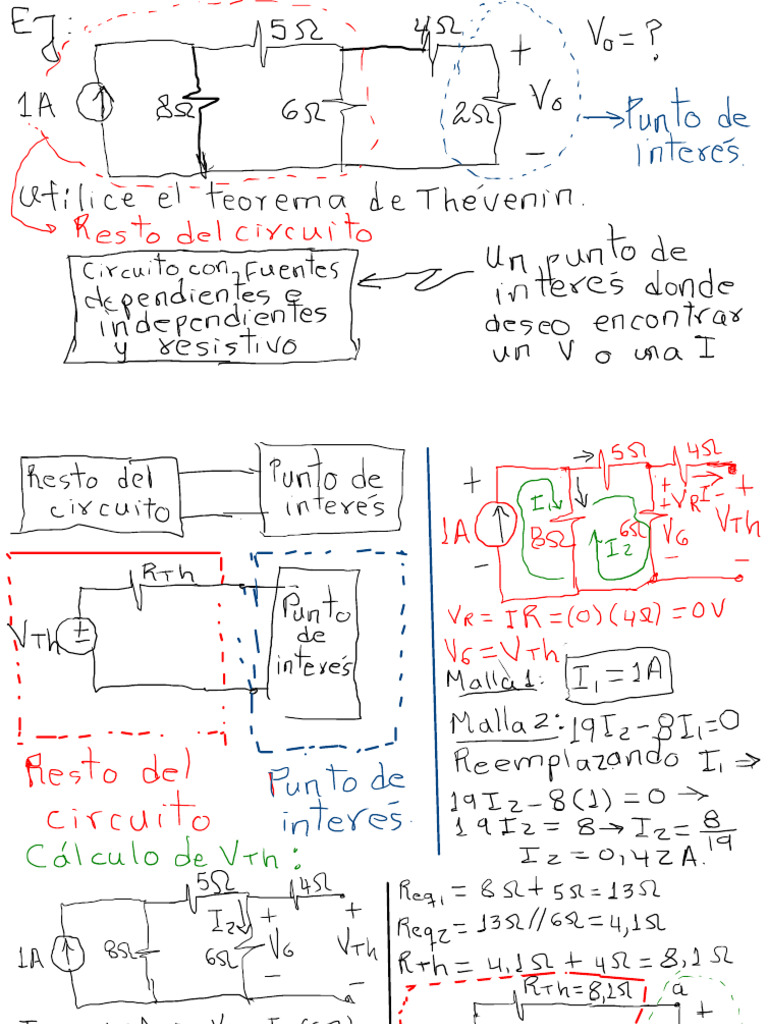 Ej:
5Ω
4Ω
1A
8Ω
6Ω
2Ω
+
Vo
-
Vo = ?
Punto de
interés.
Utilice el teorema de Thévenin.
Resto del circuito
Circuito con fuentes
dependientes e
independientes
y resistivo
Un punto de
interés donde
deseo encontrar
un V o una I
Resto del
circuito
Punto de
interés
RTh
VTh
±
Punto
de
interés
Resto del
circuito
Punto de
interés.
5Ω
4Ω
+
I1
+
+VR I -
+
1A
8Ω
I2
6Ω
V6
VTh
-
-
-
VR = IR = (0)(4Ω) = 0V
V6 = VTh
Malla 1: I1 = 1A
Malla 2: 19I2 - 8I1 = 0
Reemplazando I1 ⇒
19I2 - 8(1) = 0 →
19I2 = 8 → I2 = 8/19
I2 = 0,42A.
Cálculo de VTh:
5Ω
4Ω
I2
+
+
1A
8Ω
6Ω
V6
VTh
-
-
Req1 = 8Ω + 5Ω = 13Ω
Req2 = 13Ω // 6Ω = 4,1Ω
RTh = 4,1Ω + 4Ω = 8,1Ω
RTh = 8,1Ω
a
+